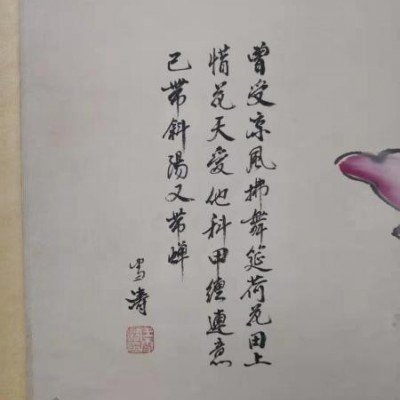 曾受凉風拂舞筵荷花田上
惜花天愛他科甲纏連意
已帶斜陽又帶蟬
雪濤